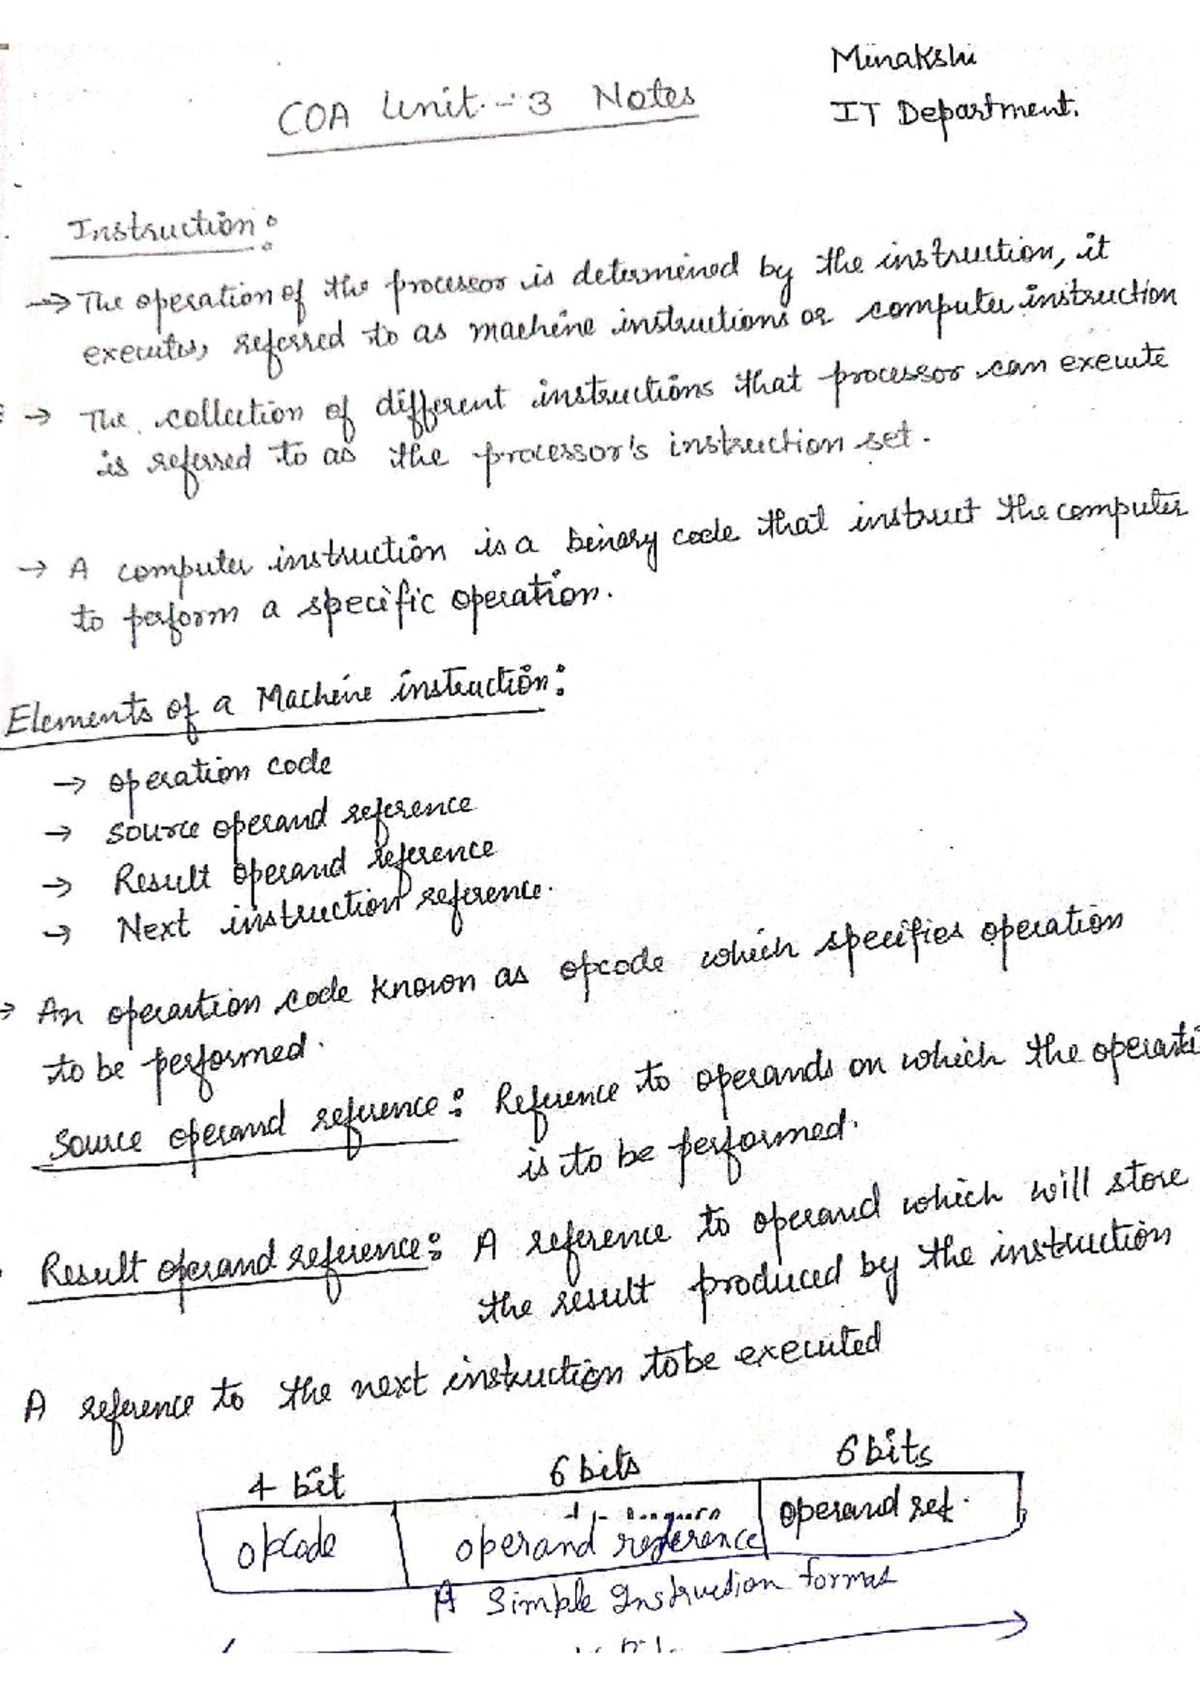 Minakshi
COA Unit - 3 Notes
IT Department.
Instruction:
→ The operation of the processor is determined by the instruction, it
executes, referred to as machine instructions or computer instruction
→ The collection of different instructions that processor can execute
is referred to as the processor's instruction set.
→ A computer instruction is a binary code that instruct the computer
to perform a specific operation.
Elements of a Machine instruction:
→ operation code
→ source operand reference
→ Result operand reference
→ Next instruction reference.
→ An operation code known as opcode which specifies operation
to be performed.
Source operand reference: Reference to operands on which the operati
is to be performed.
Result operand reference: A reference to operand which will store
the result produced by the instruction
A reference to the next instruction to be executed
4 bit 6 bits 6 bits
opcode operand reference operand ref.
A Simple Instruction format